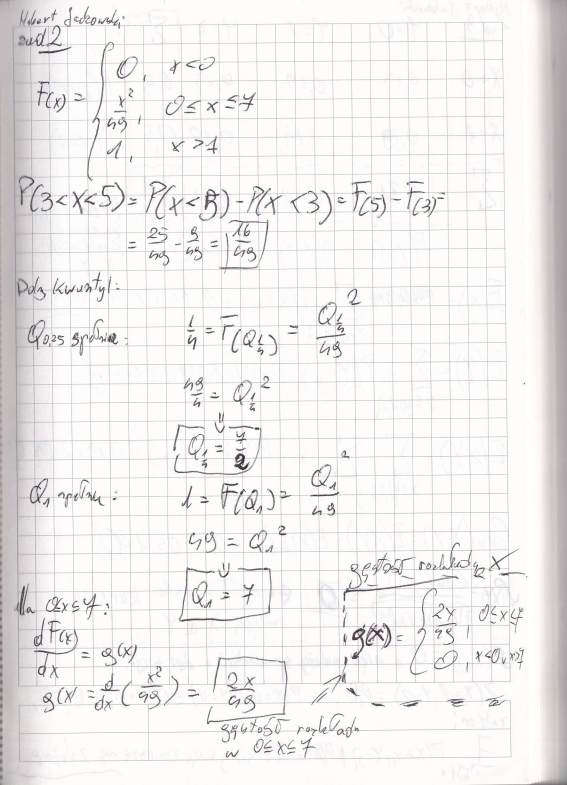 Hubert
zad 2
F(x) = { 0, x<0
x²/49, 0≤x≤7
1, x>7
P(3<x<5) = P(x<5) - P(x<3) = F(5) - F(3) =
= 25/49 - 9/49 = 16/49
Dolny kwantyl:
Q0,25 spełnia: 1/4 = F(Q1/4) = Q1/4²/49
49/4 = Q1/4²
⇓
Q1/4 = 7/2
Q1 spełnia: 1 = F(Q1) = Q1²/49
49 = Q1²
⇓
Q1 = 7
Dla 0≤x≤7:
dF(x)/dx = g(x)
g(x) = d/dx (x²/49) = 2x/49
gęstość rozkładu
w 0≤x≤7
gęstość rozkładu X
g(x) = { 2x/49, 0≤x≤7
0, x<0, x>7